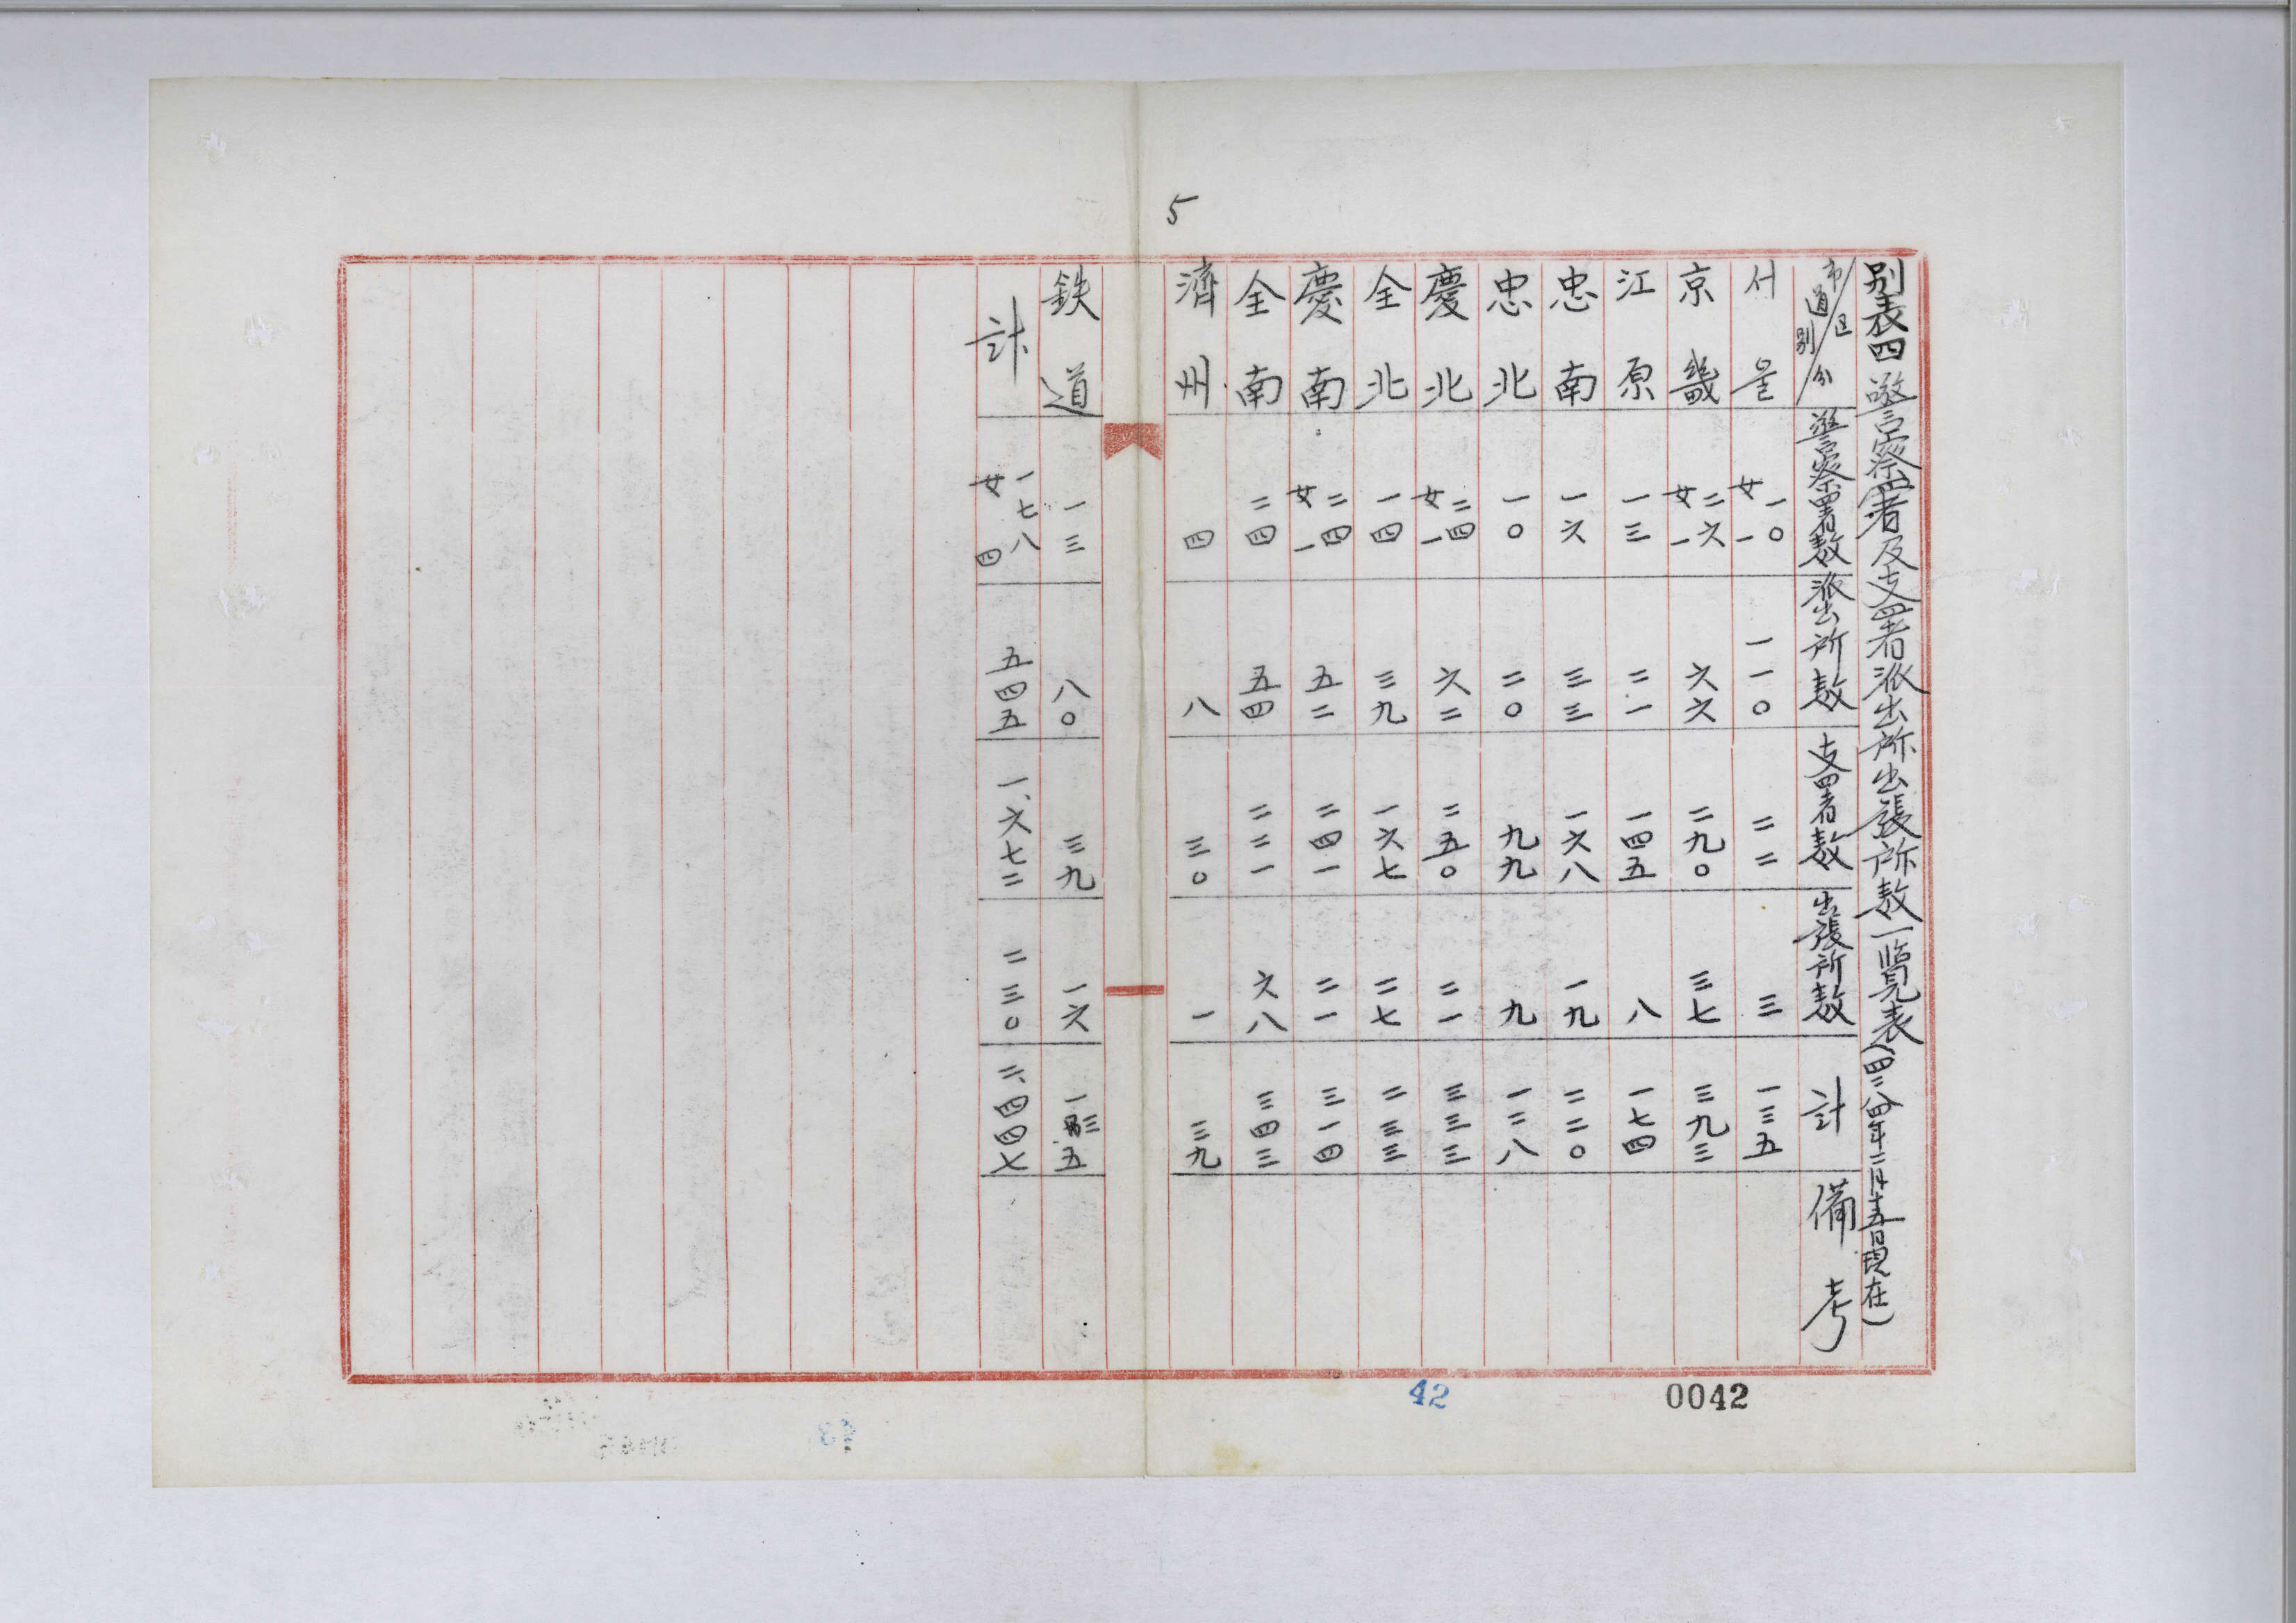 5
別表四 警察署及支署派出所出張所数一覧表(四二八四年二月十五日現在)
市道別 区分 警察署数 派出所数 支署数 出張所数 計 備考
서울 一〇 女一 一一〇 二二 三 一三五
京畿 二六 女一 六六 二九〇 三七 三九三
江原 一三 二一 一四五 八 一七四
忠南 一六 三三 一六八 一九 二二〇
忠北 一〇 二〇 九九 九 一二八
慶北 二四 女一 六二 二五〇 二一 三三三
全北 一四 三九 一六七 二七 二三三
慶南 二四 女一 五二 二四一 二一 三一四
全南 二四 五四 二二一 六八 三四三
濟州 四 八 三〇 一 三九
鉄道 一三 八〇 三九 一六 一三五
計 一七八 女四 五四五 一、六七二 二三〇 二、四四七
42
0042